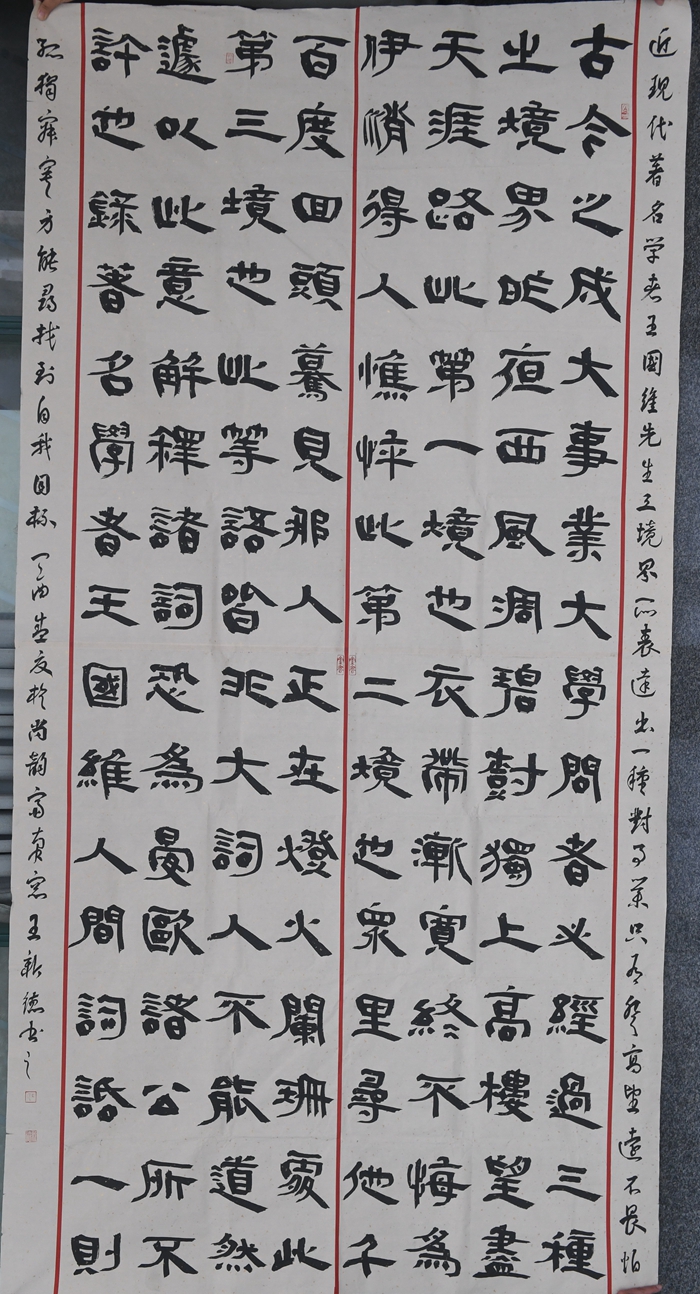 近現代著名学者王國維先生三境界所表達出一種對事業只有登高望遠不畏怕
古今之成大事業大學問者必經過三種
之境界昨夜西風凋碧樹獨上高樓望盡
天涯路此第一境也衣帶漸寬終不悔為
伊消得人憔悴此第二境也衆里尋他千
百度回頭驀見那人正在燈火闌珊處此
第三境也此等語皆非大詞人不能道然
遽以此意解釋諸詞恐為晏歐諸公所不
許也錄著名學者王國維人間詞話一則
孤獨寂寞方能尋找到自我目标 丁酉於尚韵齋窓王新德书之